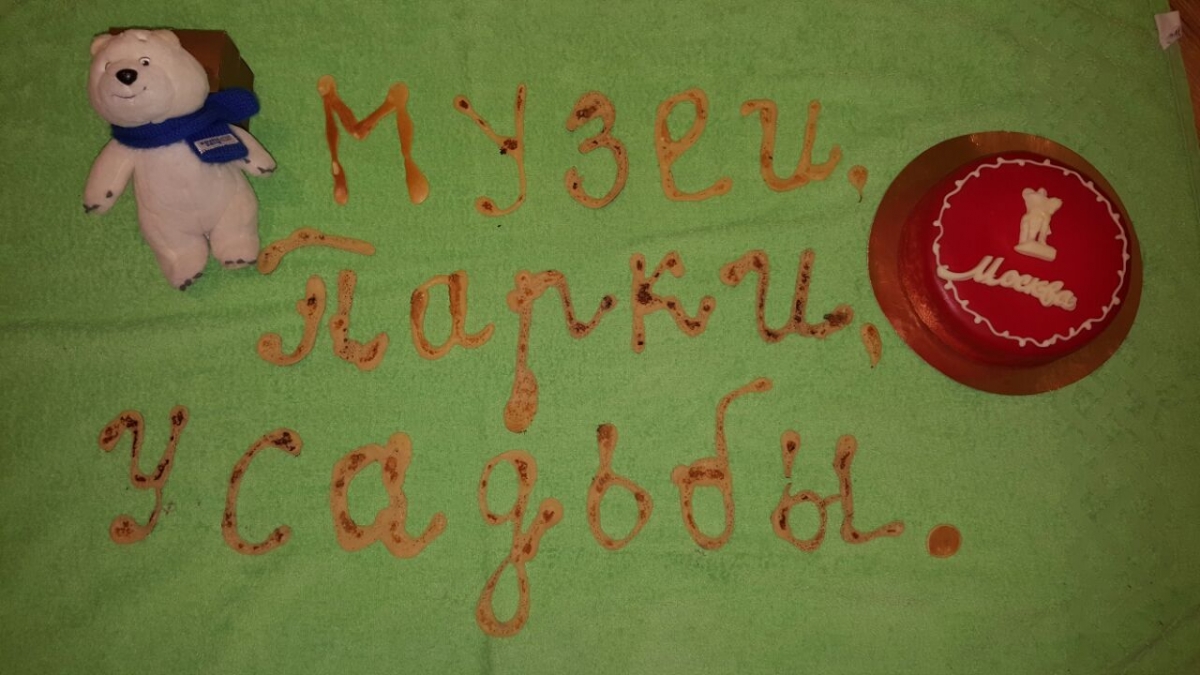 Музеи,
Парки,
Москва
Усадьбы.